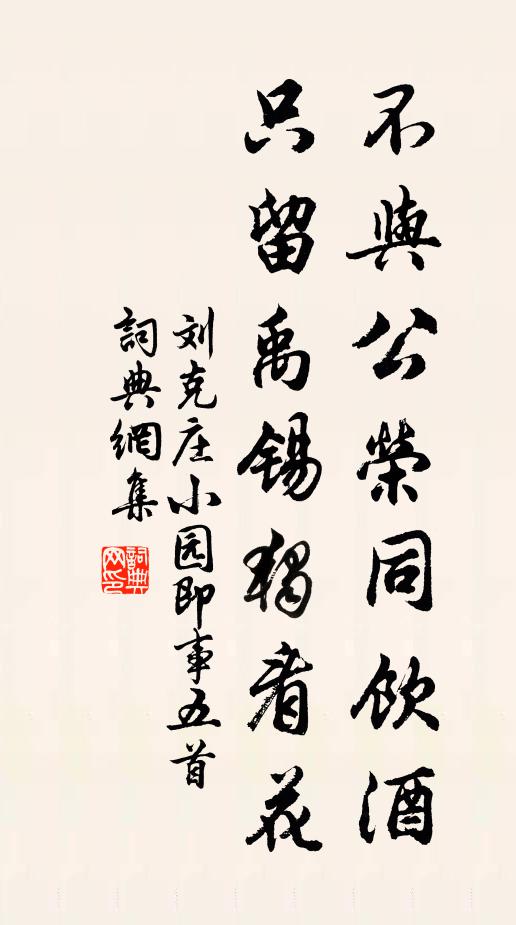 不與公榮同飲酒
只留禹錫獨看花
刘克庄小园即事五首
詞典網集
詞典网印